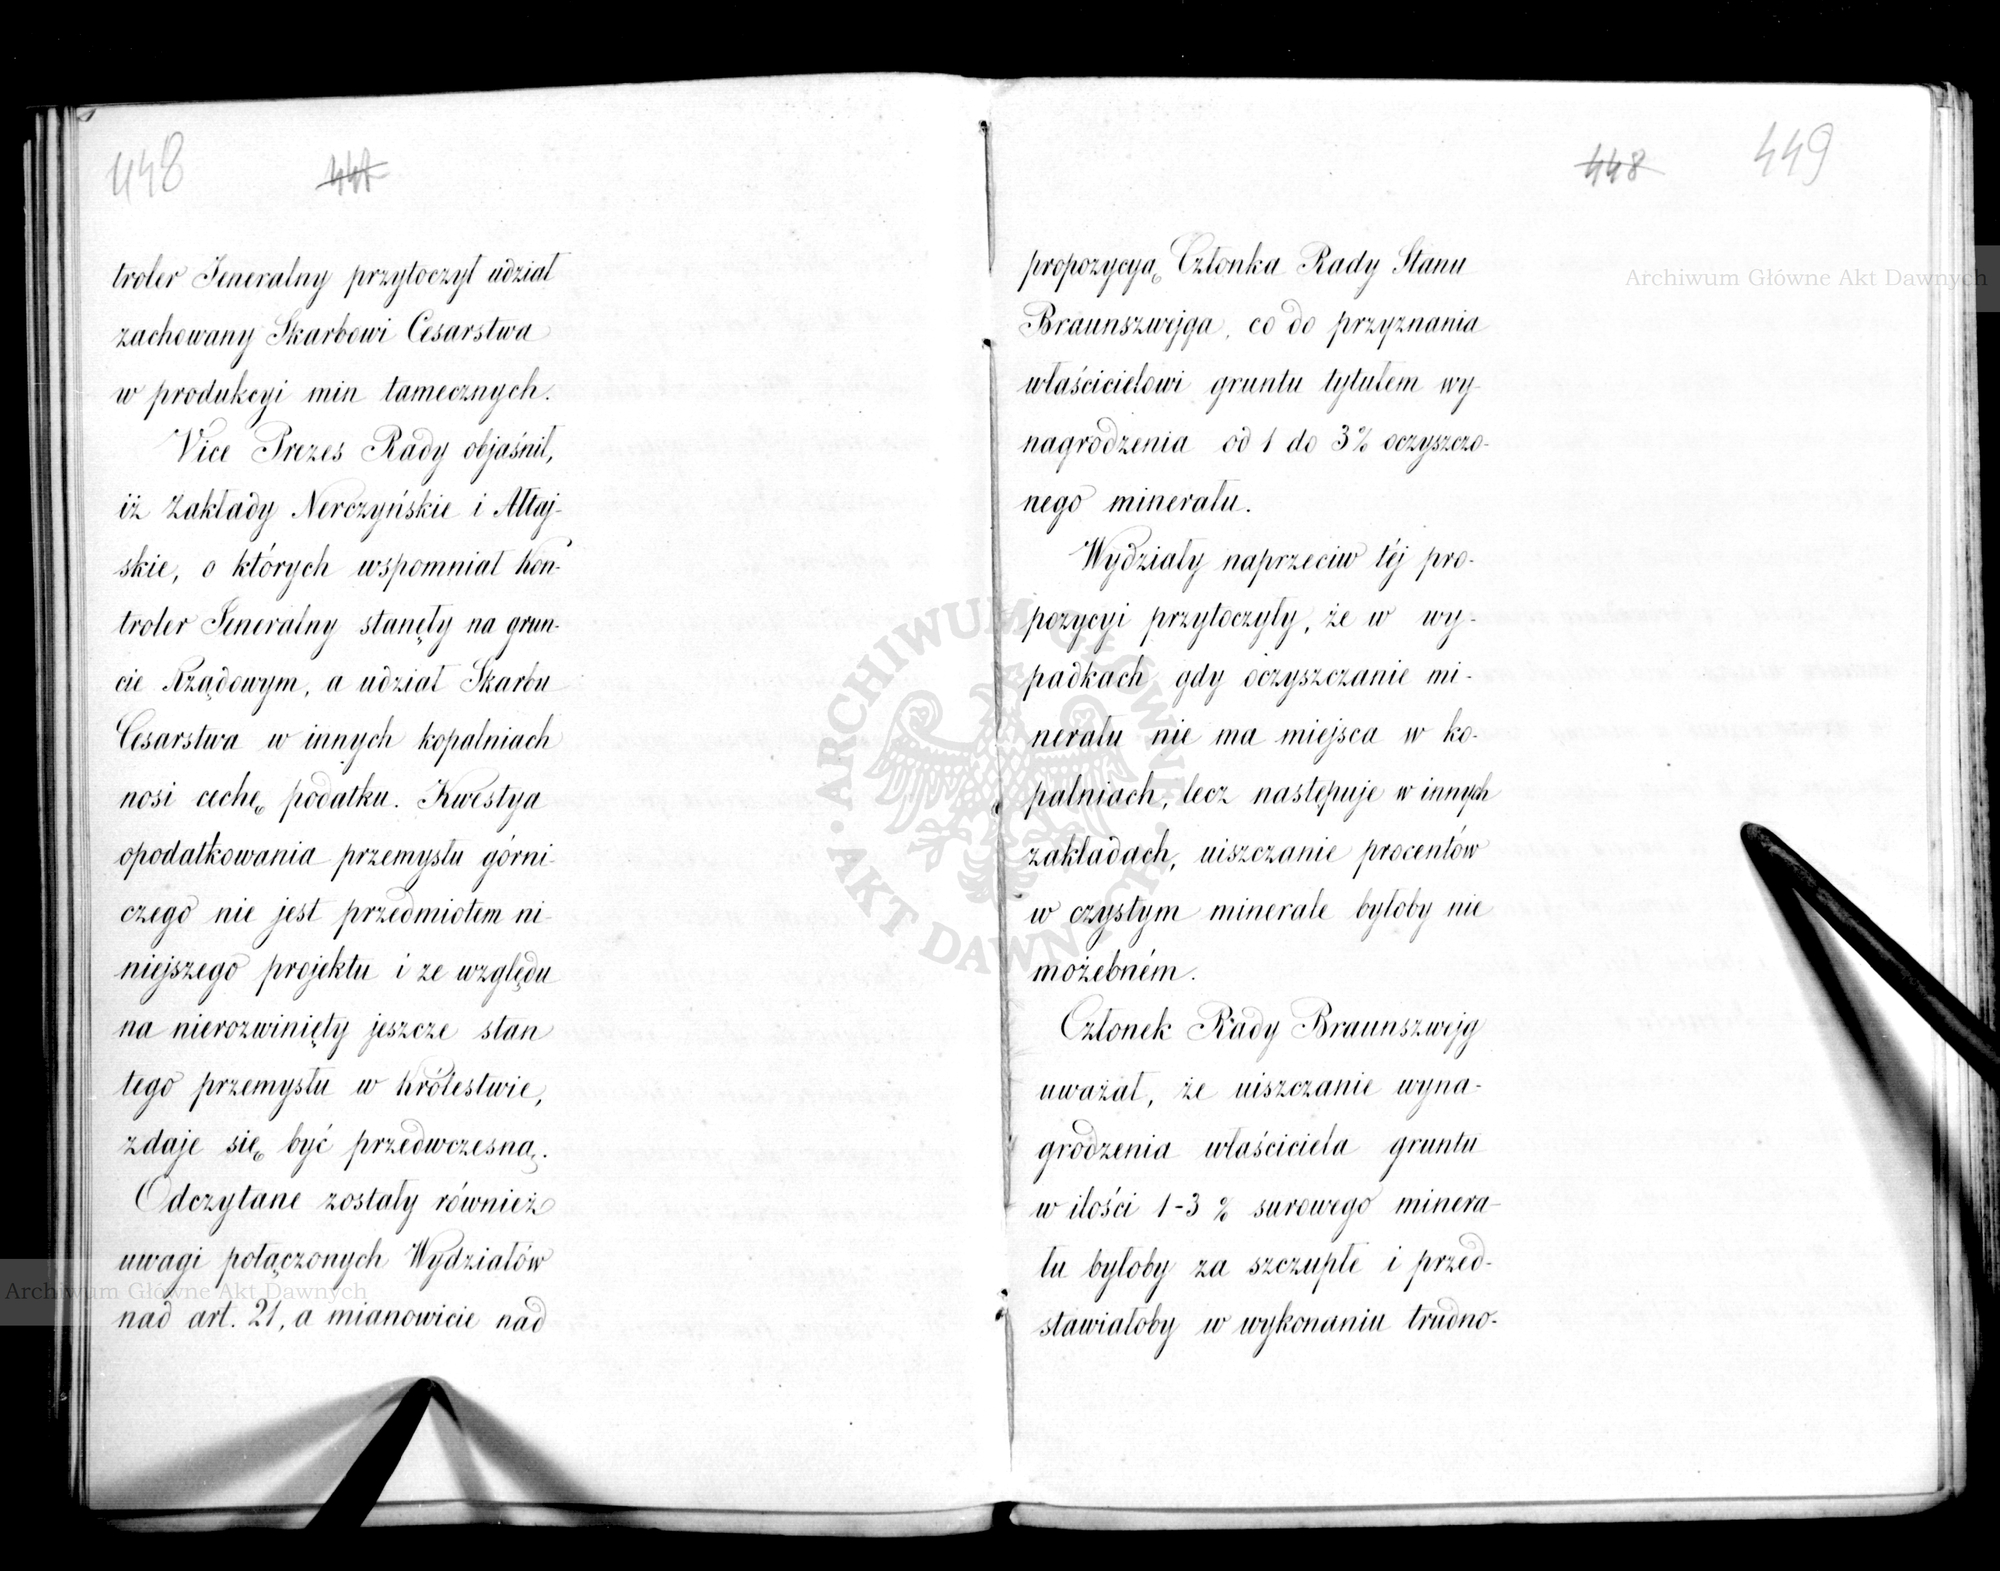 448 447
troler Jeneralny przytoczył udział
zachowany Skarbowi Cesarstwa
w produkcyi min tamecznych.
Vice Prezes Rady objaśnił,
iż Zakłady Nerczyńskie i Ałtaj-
skie, o których wspomniał Kon-
troler Jeneralny stanęły na grun-
cie Rządowym, a udział Skarbu
Cesarstwa w innych kopalniach
nosi cechę podatku. Kwestya
opodatkowania przemysłu górni-
czego nie jest przedmiotem ni-
niejszego projektu i ze względu
na nierozwinięty jeszcze stan
tego przemysłu w Królestwie,
zdaje się być przedwczesną.
Odczytane zostały również
uwagi połączonych Wydziałów
nad art. 21, a mianowicie nad
448 449
propozycyą Członka Rady Stanu
Braunszwejga, co do przyznania
właścicielowi gruntu tytułem wy-
nagrodzenia od 1 do 3% oczyszczo-
nego minerału.
Wydziały naprzeciw téj pro-
pozycyi przytoczyły, że w wy-
padkach gdy oczyszczanie mi-
nerału nie ma miejsca w ko-
palniach, lecz następuje w innych
zakładach, uiszczanie procentów
w czystym minerale byłoby nie
możebném.
Członek Rady Braunszwejg
uważał, że uiszczanie wyna-
grodzenia właściciela gruntu
w ilości 1-3% surowego minera-
łu byłoby za szczupłe i przed-
stawiałoby w wykonaniu trudno-
Archiwum Główne Akt Dawnych
Archiwum Główne Akt Dawnych
ARCHIWUM GŁÓWNE
AKT DAWNYCH